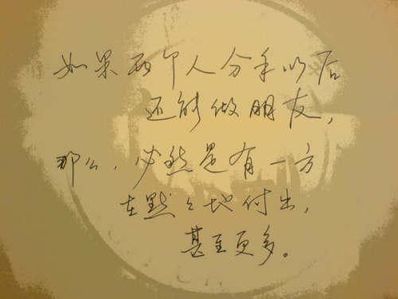 如果两个人分手以后
还能做朋友，
那么，必然是有一方
在默々地付出，
甚至更多。